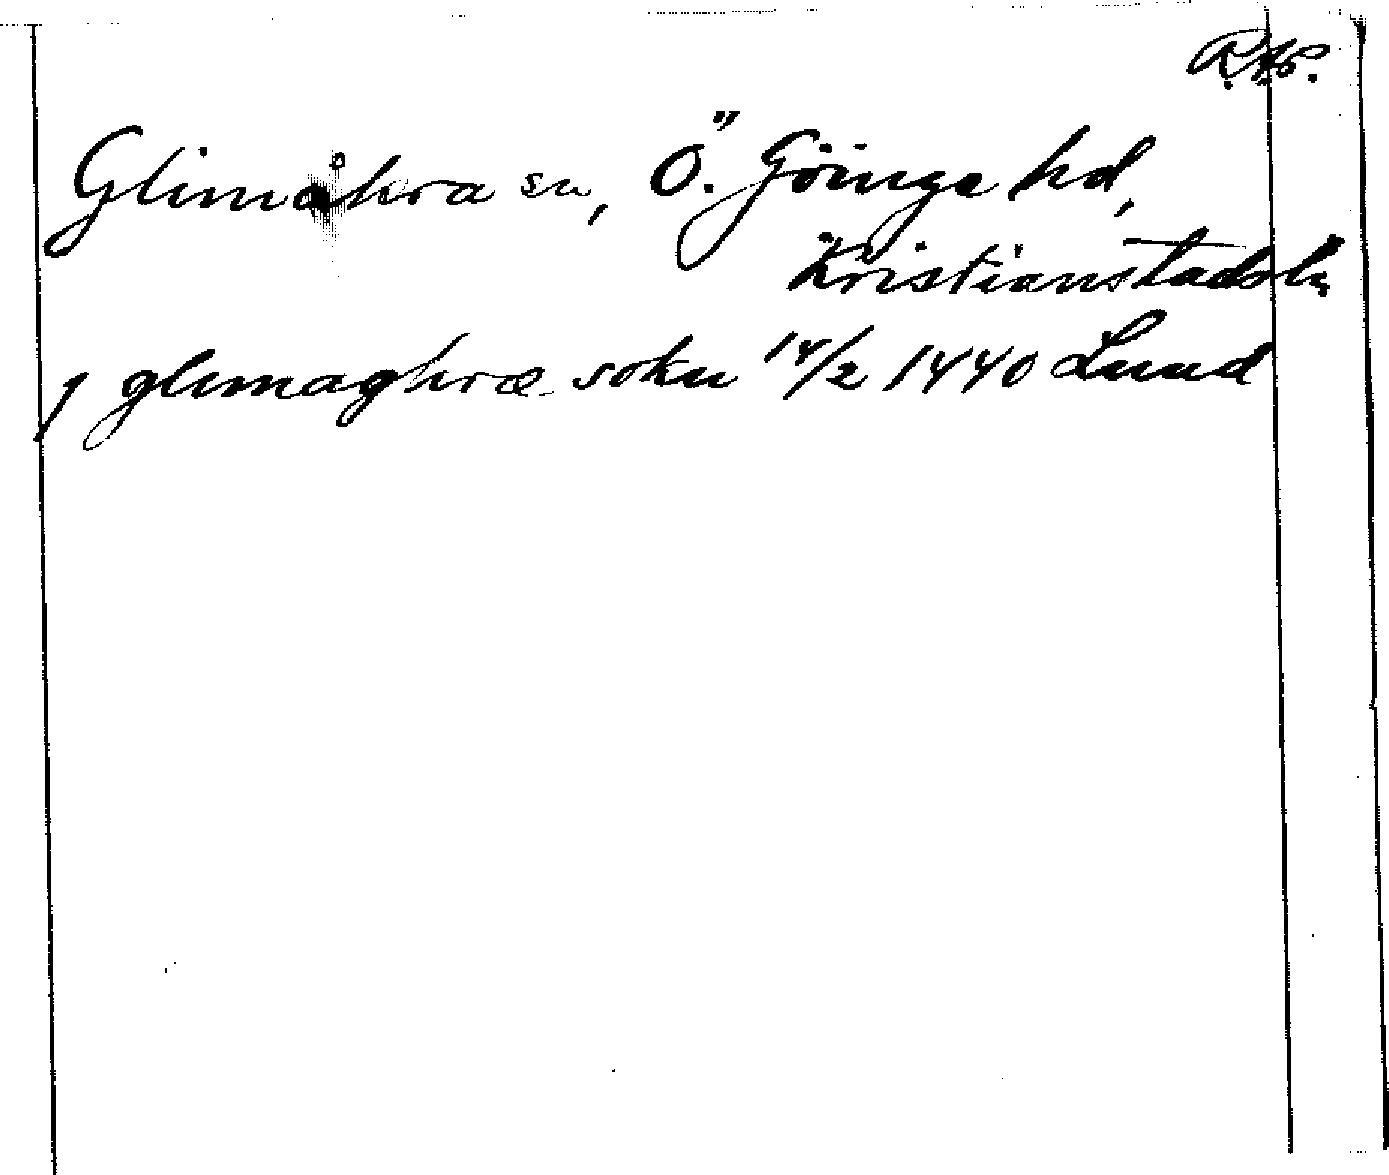 Glimåkra sn, Ö. Göinge hd,
Kristianstads l.
j glimaghræ sokn 14/2 1440 Lund